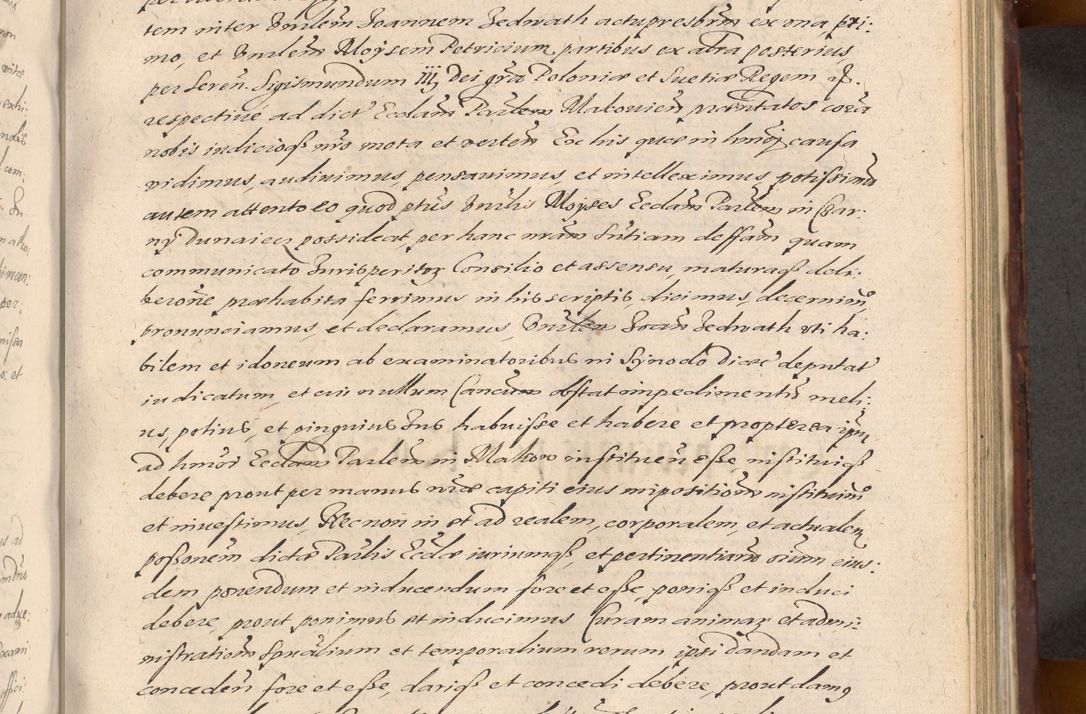 tem inter Vnlem Joannem Jedwath actu presbrm ex vna, pri:
mo, et Vnlem Moysem Petricium partibus ex altra posterius,
per Seren. Sigismundum III Dei gra Poloniæ et Suetiæ Regem
respective ad dict Ecclam Parlem Makovien præntatos cora
nobis iudicioq nro mota et verten Ex his quæ in hmoi causa
vidimus, audivimus pensavimus et intelleximus, potissimu
autem attento eo quod ptus Vnlis Moyses Ecclam Parlem in Czar:
ny Dunaiec possideat, per hanc nram Sntiam deffam quam
communicato Jurisperitor Consilio et assensu, maturaq deli:
berone præhabita ferrimus in his scriptis, dicimus, decernim9
pronunciamus, et declaramus, Vnlem Joan Jedwath uti ha:
bilem et idoneum ab examinatoribus in Synodo Diæc deputat
iudicatum, et cui nullum Cancum obstat impedimentu meli:
us, potius, et pinguius Jus habuisse et habere et propterea ipm
ad hmoi Ecclam Parlem in Makow instituen esse, instituiq
debere prout per manus nræ capiti eius impositionem instituim9
et investimus, Necnon in et ad realem, corporalem, et actualem
possonem dictæ Parlis Ecclæ iuriumq, et pertinentiaru oium eius:
dem ponendum et inducendum fore et esse, poniq et induci
debere, prout ponimus et inducimus Curam animar et admi:
nistrationem Spualium et temporalium rerum ipsi dandam et
conceden fore et esse, dariq et concedi debere, prout dam9